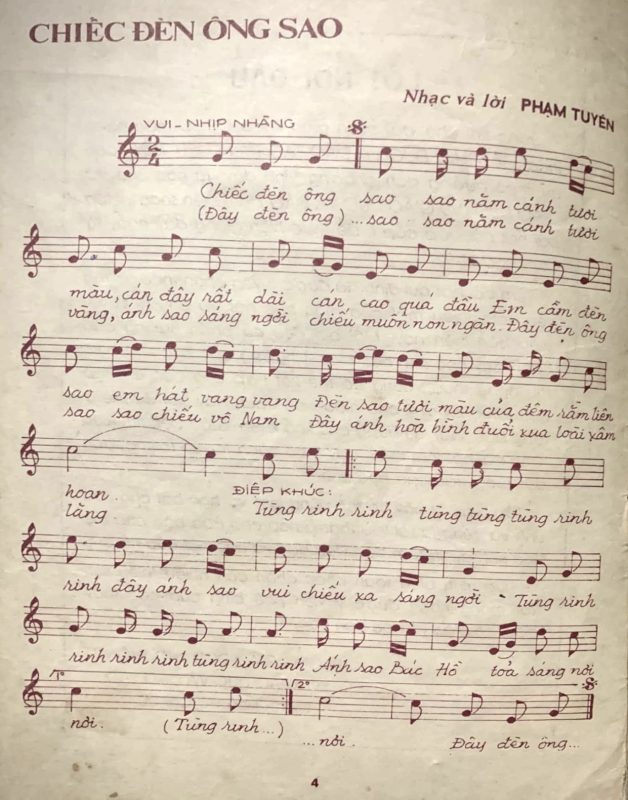 CHIẾC ĐÈN ÔNG SAO
Nhạc và lời PHẠM TUYÊN
VUI - NHỊP NHÀNG
2/4
Chiếc đèn ông sao sao năm cánh tươi
(Đây đèn ông)... sao sao năm cánh tươi
màu, cán đây rất dài cán cao quá đầu Em cầm đèn
vàng, ánh sao sáng ngời chiếu muôn non ngàn. Đây đèn ông
sao em hát vang vang Đèn sao tươi màu của đêm rằm liên
sao sao chiếu vô Nam Đây ánh hoà bình đuổi xua loài xâm
hoan. ĐIỆP KHÚC: Tùng rinh rinh tùng tùng tùng rinh
lăng.
rinh đây ánh sao vui chiếu xa sáng ngời - Tùng rinh
rinh rinh rinh tùng rinh rinh Ánh sao Bác Hồ toả sáng nơi
1° 2°
nơi. (Tùng rinh...) ...nơi. Đây đèn ông...
4